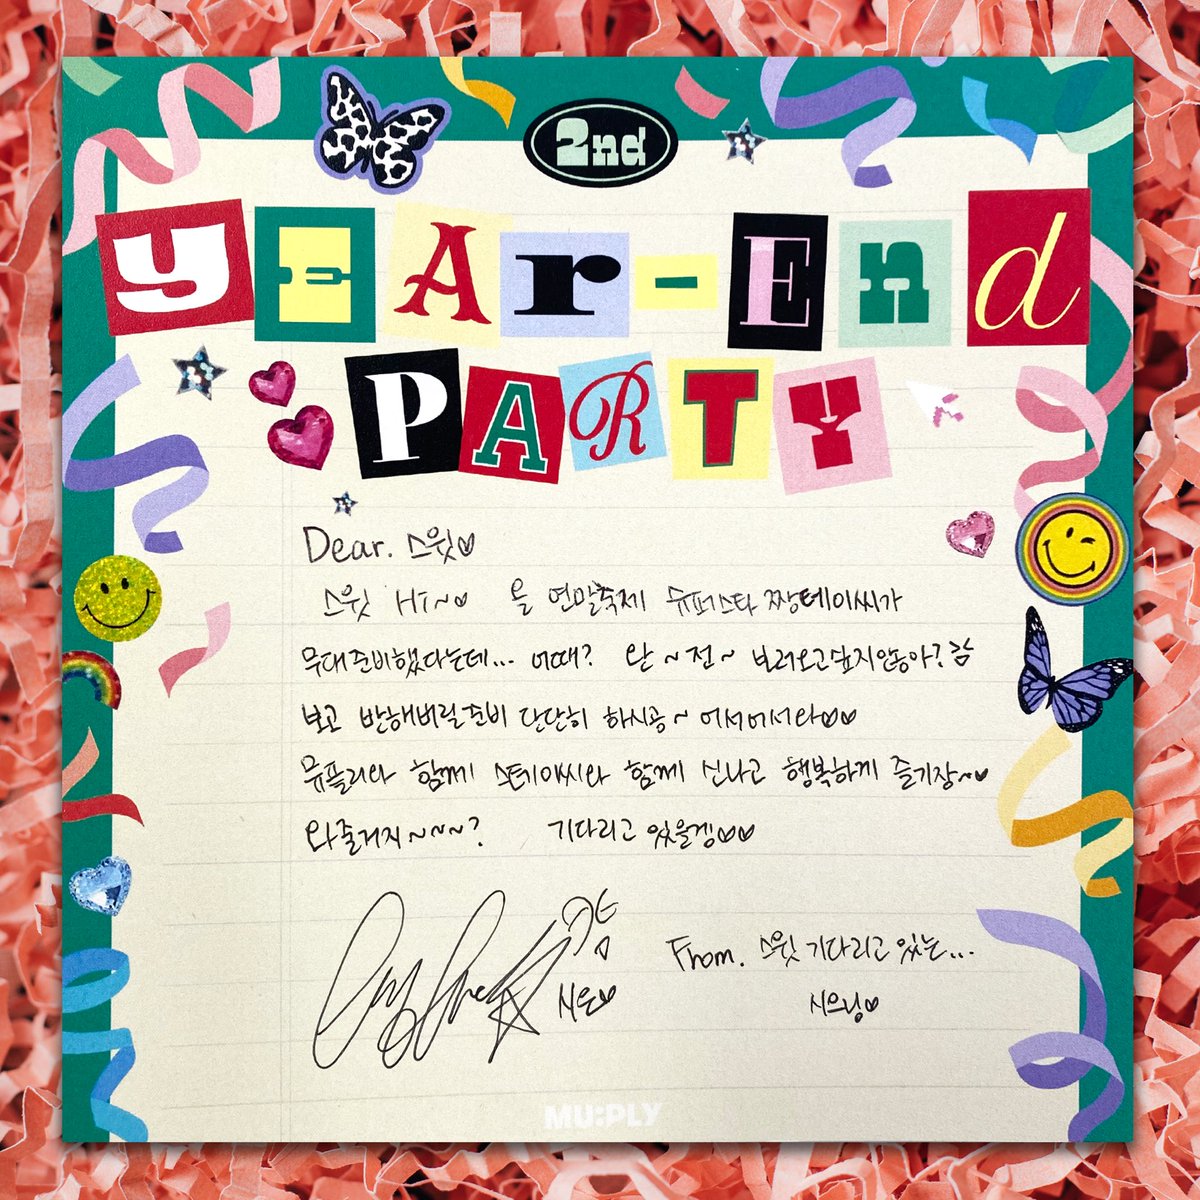 2nd
YEAR-END
PARTY
Dear. 스윗♡
스윗 Hi~♡ 올 연말축제 슈퍼스타 짱테이씨가
무대준비했다는데... 어때? 완~전~ 보러오고싶지않아?
보고 반해버릴준비 단단히 하시공~ 어서어서와♡♡
뮤플리와 함께 스테이씨와 함께 신나고 행복하게 즐기장~♡
와줄거지~~~? 기다리고 있을겡♡♡
시은♡
From. 스윗 기다리고 있는...
시으닝♡
MU:PLY